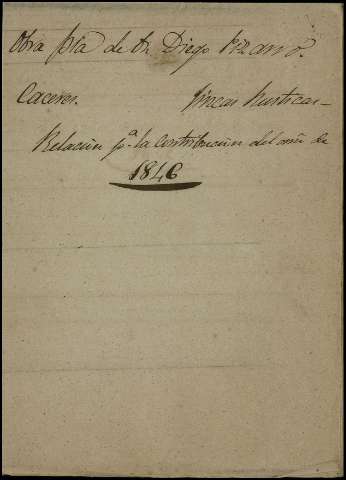 Obra pia de Dn Diego Pizarro.
Caceres. Fincas Rusticas-
Relacion pa. la contribucion del año de
1846